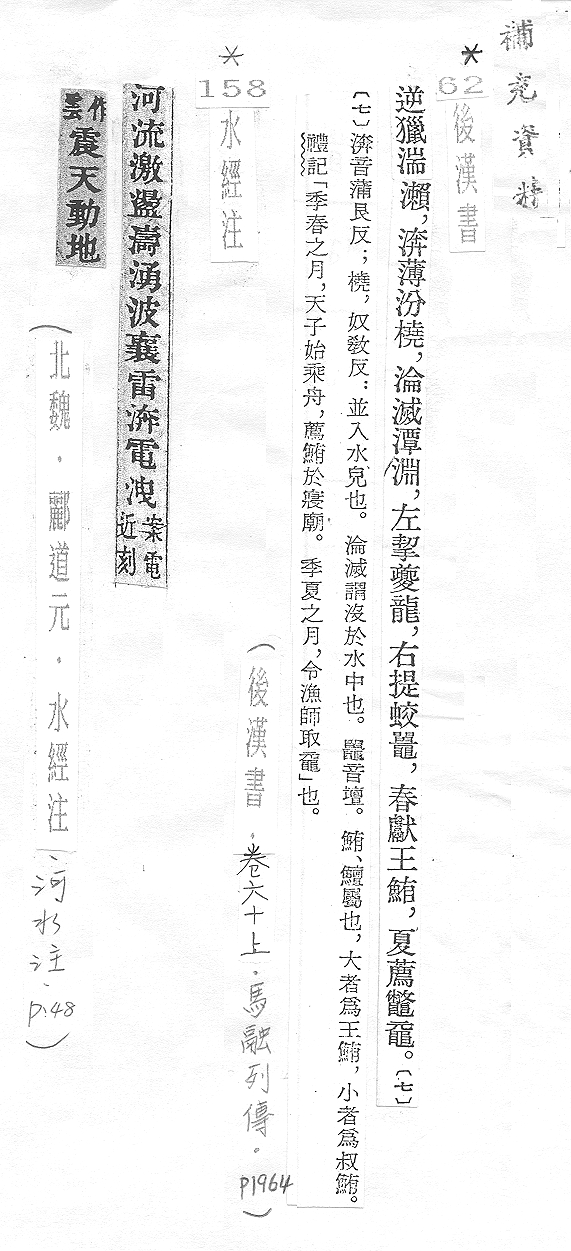 補充資料
*
62
後漢書
逆獵湍瀨，渀薄汾橈，淪滅潭淵，左挈夔龍，右提蛟鼉，春獻王鮪，夏薦鼈黿。〔七〕
〔七〕渀音蒲艮反；橈，奴敎反：並入水皃也。淪滅謂沒於水中也。鼉音壇。鮪、鱣屬也，大者爲王鮪，小者爲叔鮪。
禮記「季春之月，天子始乘舟，薦鮪於寑廟。季夏之月，令漁師取黿」也。
（後漢書．卷六十上．馬融列傳。p1964）
*
158
水經注
河流激盪濤湧波襄雷渀電洩案電近刻
作雲震天動地
（北魏．酈道元．水經注、河水注、p.48）